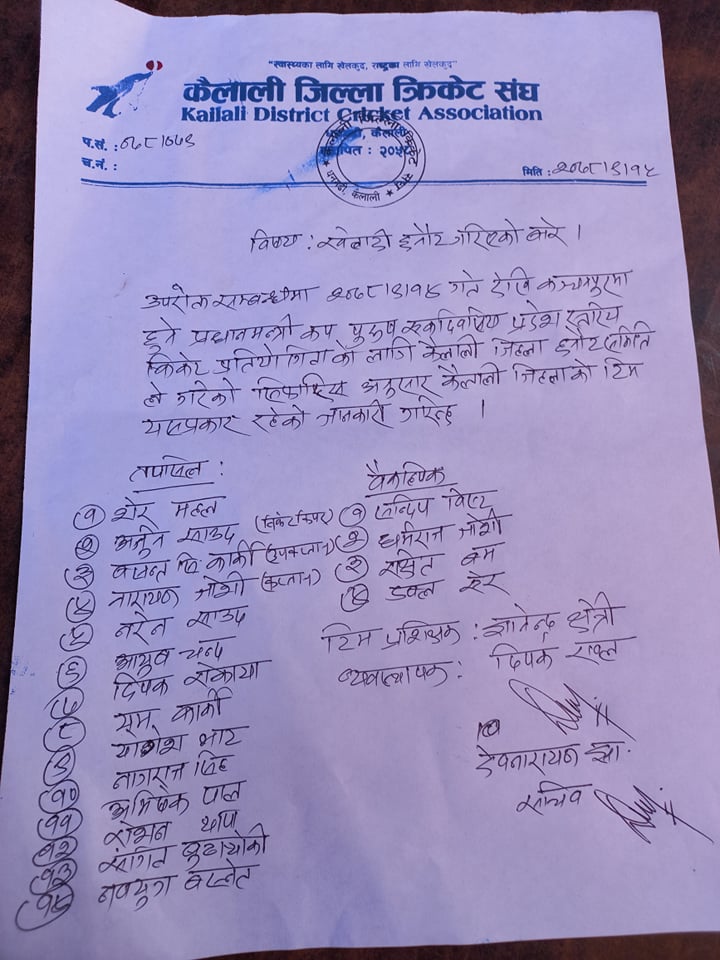 "स्वास्थ्यका लागि खेलकुद, राष्ट्रका लागि खेलकुद"
कैलाली जिल्ला क्रिकेट संघ
Kailali District Cricket Association
कैलाली
स्थापित : २०५
कैलाली जिल्ला क्रिकेट संघ
धनगढी, कैलाली
प.सं. : ०७८/०७९
च.नं. :
मिति : २०७८/९/१५
विषय : खेलाडी छनौट गरिएको बारे ।
उपरोक्त सम्बन्धमा २०७८/९/१५ गते देखि कञ्चनपुरमा
हुने प्रधानमन्त्री कप पुरुष एकदिवसिय प्रदेश स्तरिय
क्रिकेट प्रतियोगिता को लागि कैलाली जिल्ला छनौट समिति
ले गरेको सिफारिस अनुसार कैलाली जिल्लाको टिम
यसप्रकार रहेको जानकारी गरिन्छ ।
तपसिल :
१ शेर मल्ल
२ अर्जुन साउद (विकेटकिपर)
३ बसन्त सिं कार्की (उपकप्तान)
४ नारायण जोशी (कप्तान)
५ नरेन साउद
६ आयुव चन्द
७ दिपक रोकाया
८ सुम कार्की
९ योगेश भाट
१० नागराज सिंह
११ अभिषेक पाल
१२ रोभन थापा
१३ संगित बुढायोकी
१४ नवयुग बस्नेत
वैकल्पिक
१ सन्दिप विष्ट
२ धर्मराज जोशी
३ रोहित बम
४ डबल शेर
टिम प्रशिक्षक : ज्ञानेन्द्र क्षेत्री
व्यवस्थापक : दिपक रावल
देवनारायण झा.
सचिव